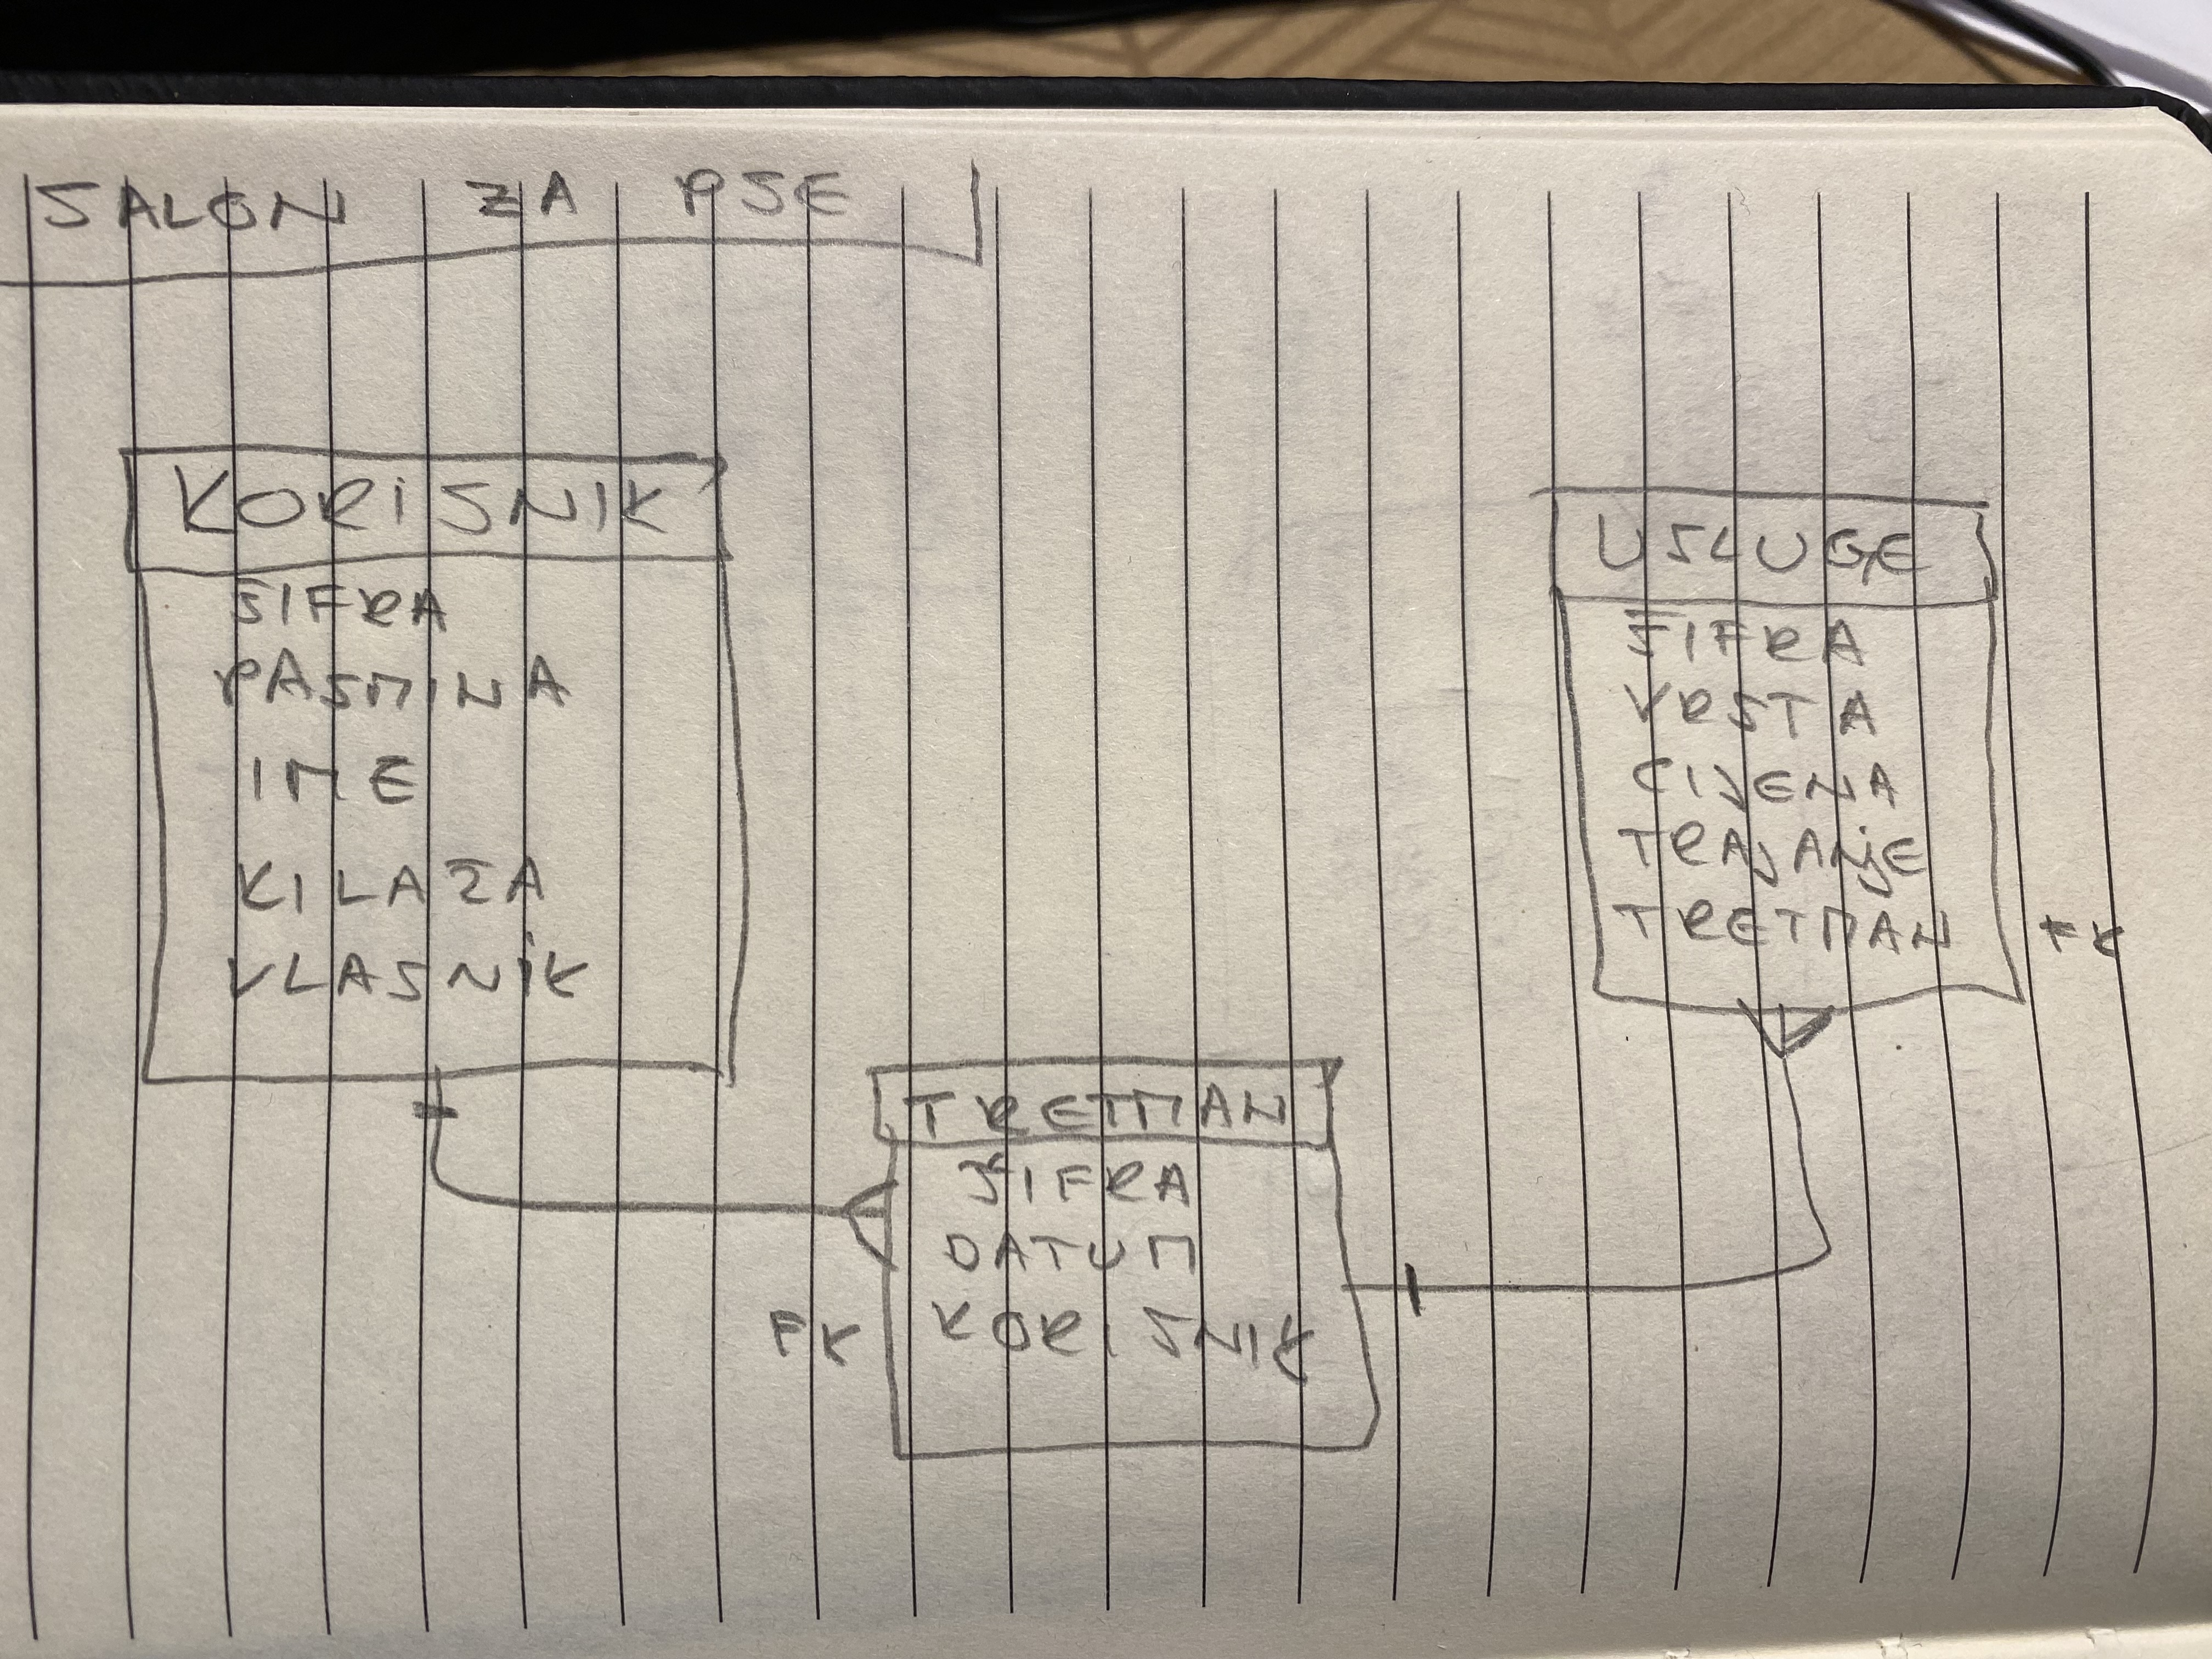 SALON ZA PSE
KORISNIK
ŠIFRA
PASMINA
IME
KILAŽA
VLASNIK
USLUGE
ŠIFRA
VRSTA
CIJENA
TRAJANJE
TRETMAN FK
TRETMAN
ŠIFRA
DATUM
FK KORISNIK